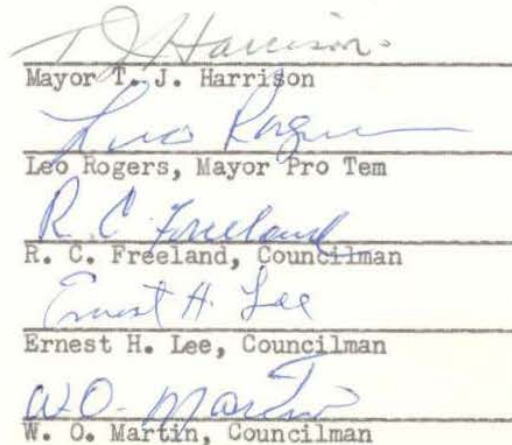 T J Harrison
Mayor T. J. Harrison
Leo Rogers
Leo Rogers, Mayor Pro Tem
R. C. Freeland
R. C. Freeland, Councilman
Ernest H. Lee
Ernest H. Lee, Councilman
W.O. Martin
W. O. Martin, Councilman